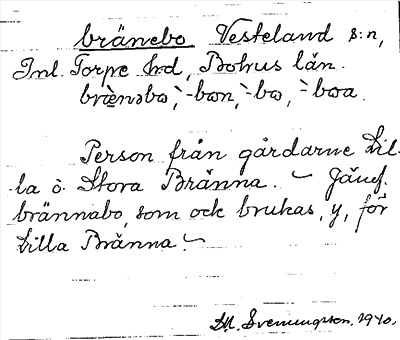 bränebo Vesteland s:n,
Inl. Torpe hd, Bohus län.
brænəbo, -bon, -bo, -boa.
Person från gårdarne Lil-
la o. Stora Bränna. – Jämf.
brännabo, som ock brukas, y, för
Lilla Bränna.
D.M. Svenungsson. 1940.